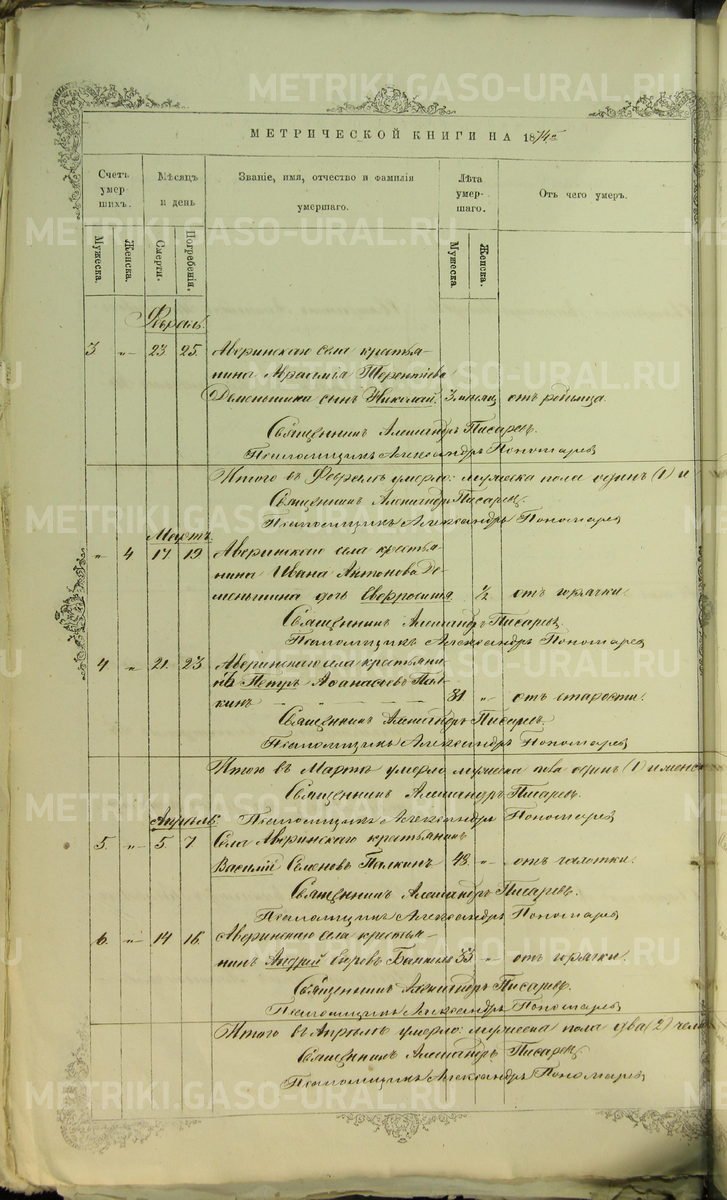 METRIKI.GASO-URAL.RU
МЕТРИЧЕСКОЙ КНИГИ НА 1874й
Счетъ умершихъ.
Мѣсяцъ и день
Званіе, имя, отчество и фамилія умершаго.
Лѣта умершаго.
Отъ чего умеръ.
Мужеска.
Женска.
Смерти.
Погребенія.
Мужеска
Женска.
Февраль.
3 " 23 25 Аверинскаго села крестья-
нина Терентіева
сынъ Николай. 3 мѣсяц. отъ родимца.
Священникъ Александръ Писаревъ.
Псаломщикъ Александръ Пономаревъ
Итого въ Февралѣ умерло: мужеска пола одинъ (1) и
Священникъ Александръ Писаревъ.
Псаломщикъ Александръ Пономаревъ
Мартъ.
" 4 17 19 Аверинскаго села крестья-
нина Ивана Антонова До-
меньшина дочь Евфросинія ½ отъ горячки.
Священникъ Александръ Писаревъ.
Псаломщикъ Александръ Пономаревъ
4 " 21 23 Аверинскаго села крестьяни-
нъ Петръ Аѳанасьевъ Пал-
кинъ 81 " отъ старости.
Священникъ Александръ Писаревъ.
Псаломщикъ Александръ Пономаревъ
Итого въ Мартѣ умерло мужеска пола одинъ (1) и женск
Священникъ Александръ Писаревъ.
Псаломщикъ Александръ Пономаревъ
Апрѣль.
5 " 5 7 Села Аверинскаго крестьянинъ
Василій Семеновъ Палкинъ 48 " отъ чахотки.
Священникъ Александръ Писаревъ.
Псаломщикъ Александръ Пономаревъ
6 " 14 16 Аверинскаго села крестья-
нинъ Андрей 33 " отъ горячки.
Священникъ Александръ Писаревъ.
Псаломщикъ Александръ Пономаревъ
Итого въ Апрѣлѣ умерло: мужеска пола два (2) чело
Священникъ Александръ Писаревъ
Псаломщикъ Александръ Пономаревъ